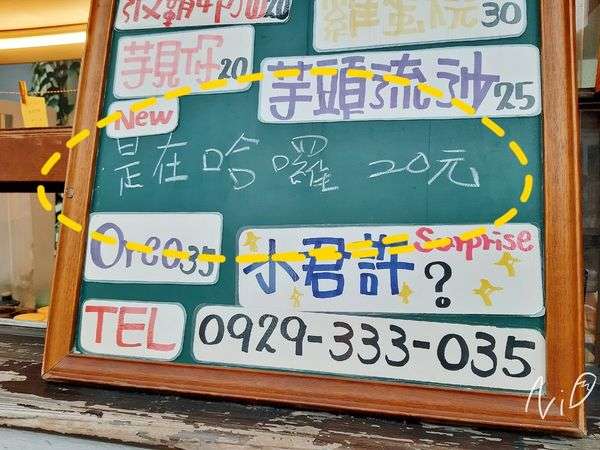 20
雞蛋燒30
芋見你20
芋頭流沙25
New
是在哈囉 20元
Oreo35
小君許?
Surprise
TEL
0929-333-035